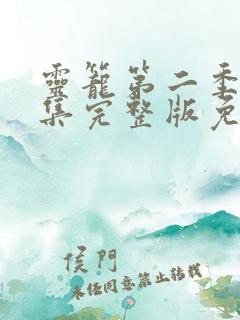 靈籠第二季
集完整版免
侯門
未經同意禁止转载